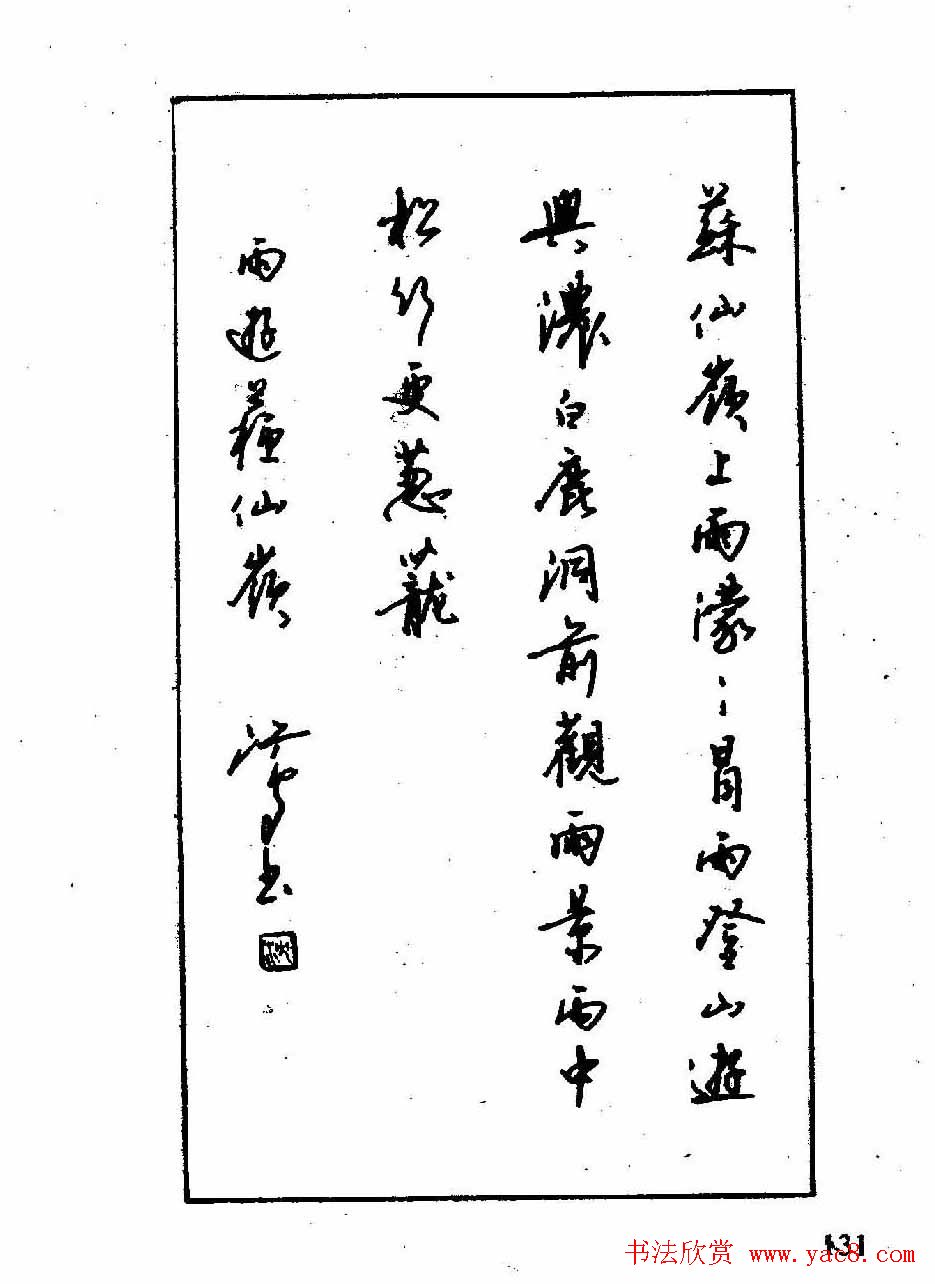 蘇仙嶺上雨濛〻冒雨登山遊
興濃白鹿洞前觀雨景雨中
松竹更蔥蘢
雨遊蘇仙嶺
書
131
书法欣赏 www.yac8.com